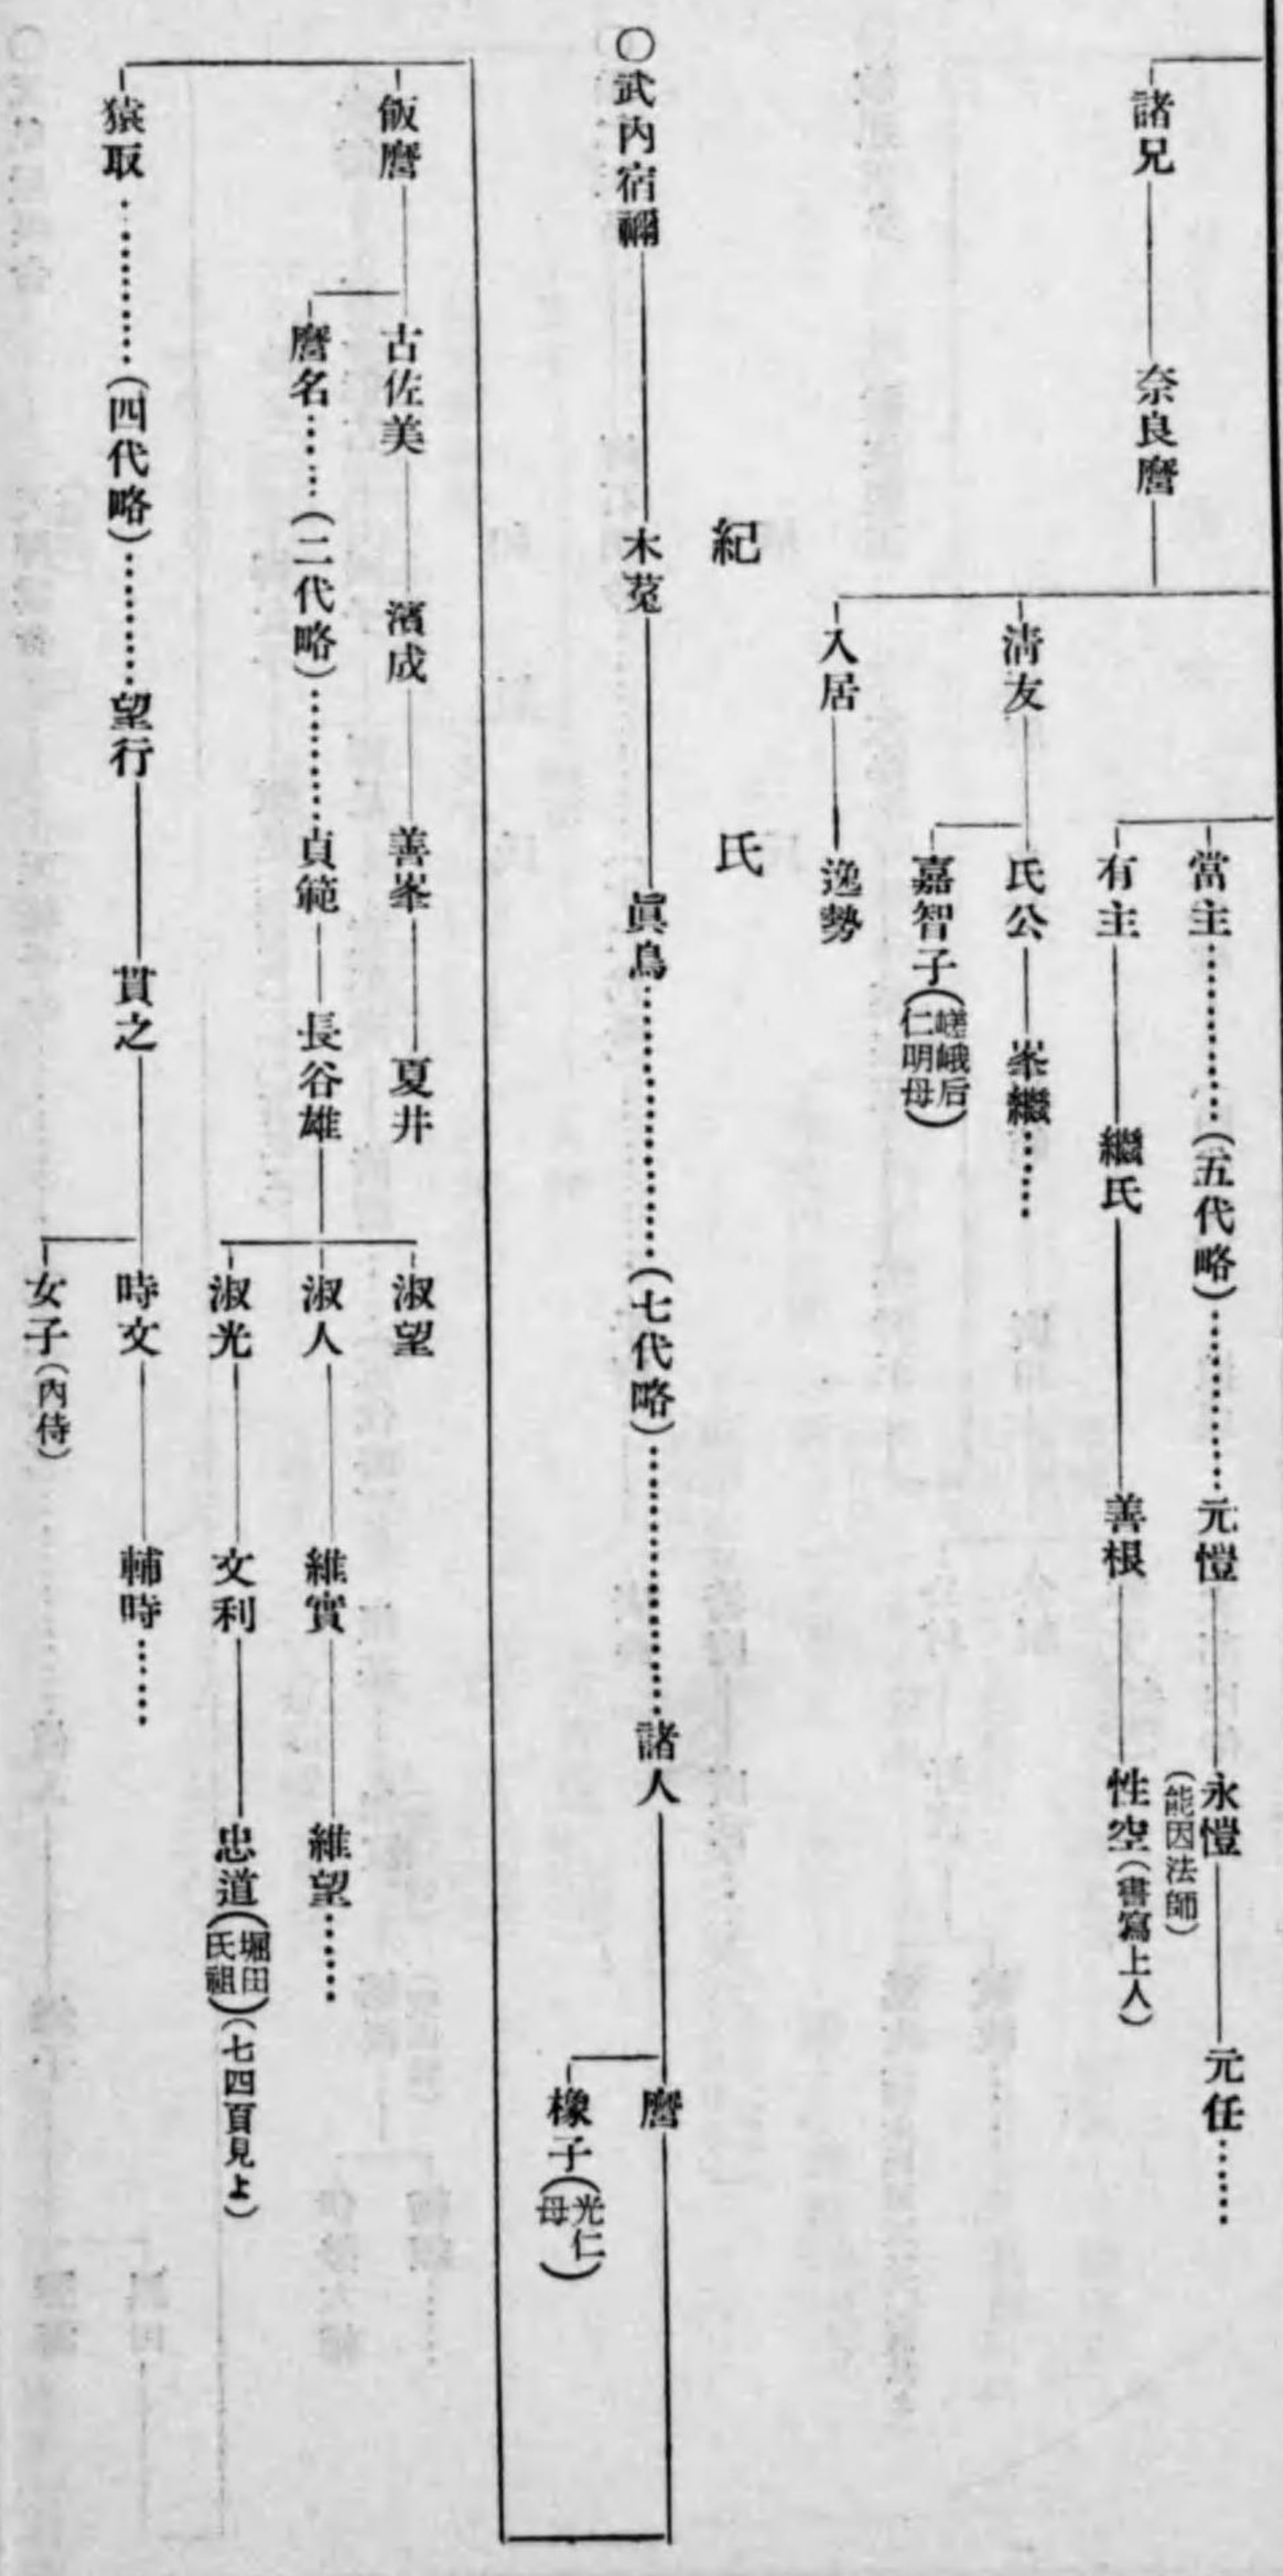 諸兄 奈良麿
當主……(五代略)……元愷 永愷(能因法師) 元任……
有主 繼氏 善根 性空(書寫上人)
淸友 氏公 峯繼……
嘉智子(嵯峨后 仁明母)
入居 逸勢
紀氏
〇武內宿禰 木菟 眞鳥……(七代略)……諸人 麿
橡子(光仁母)
飯麿 古佐美 濱成 善峯 夏井
麿名……(二代略)……貞範 長谷雄 淑望
淑人 維實 維望……
淑光 文利 忠道(堀田氏祖)(七四頁見よ)
猿取……(四代略)……望行 貫之 時文 輔時……
女子(內侍)